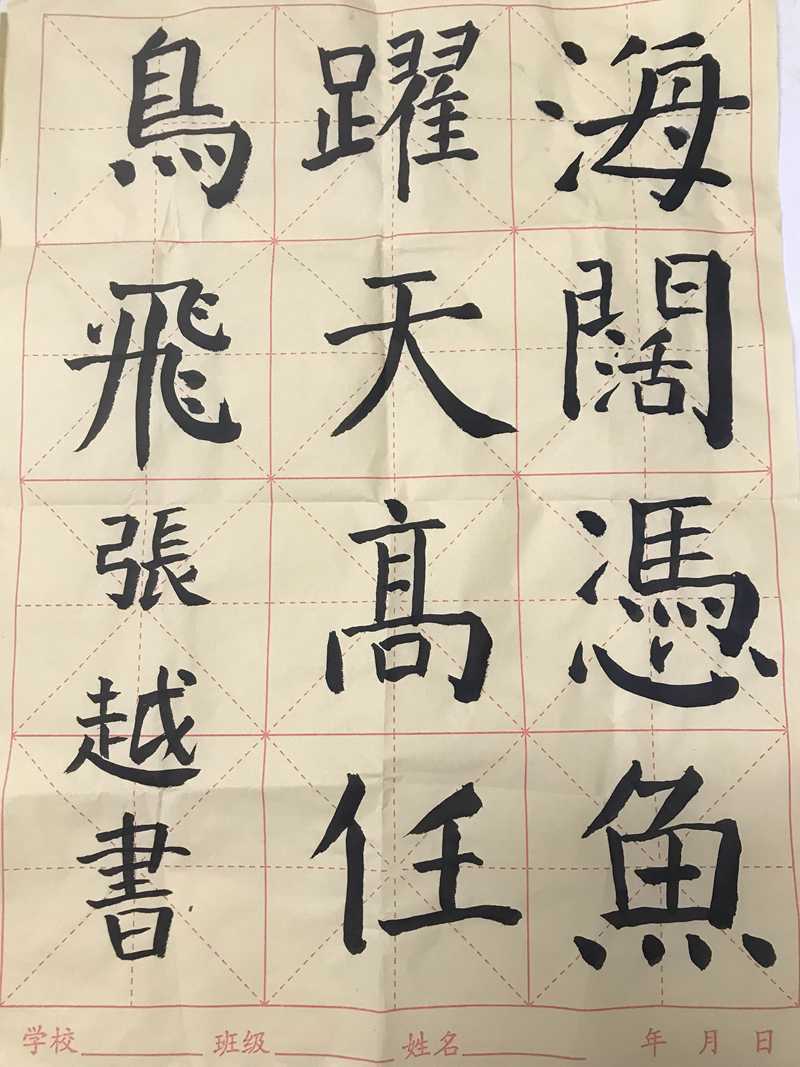 海闊憑魚
躍天高任
鳥飛張越書
学校 班级 姓名 年 月 日